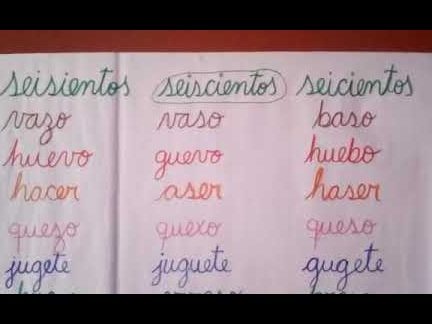 seisientos seiscientos seicientos
vazo vaso baso
huevo guevo huebo
hacer aser haser
quezo quexo queso
jugete juguete gugete